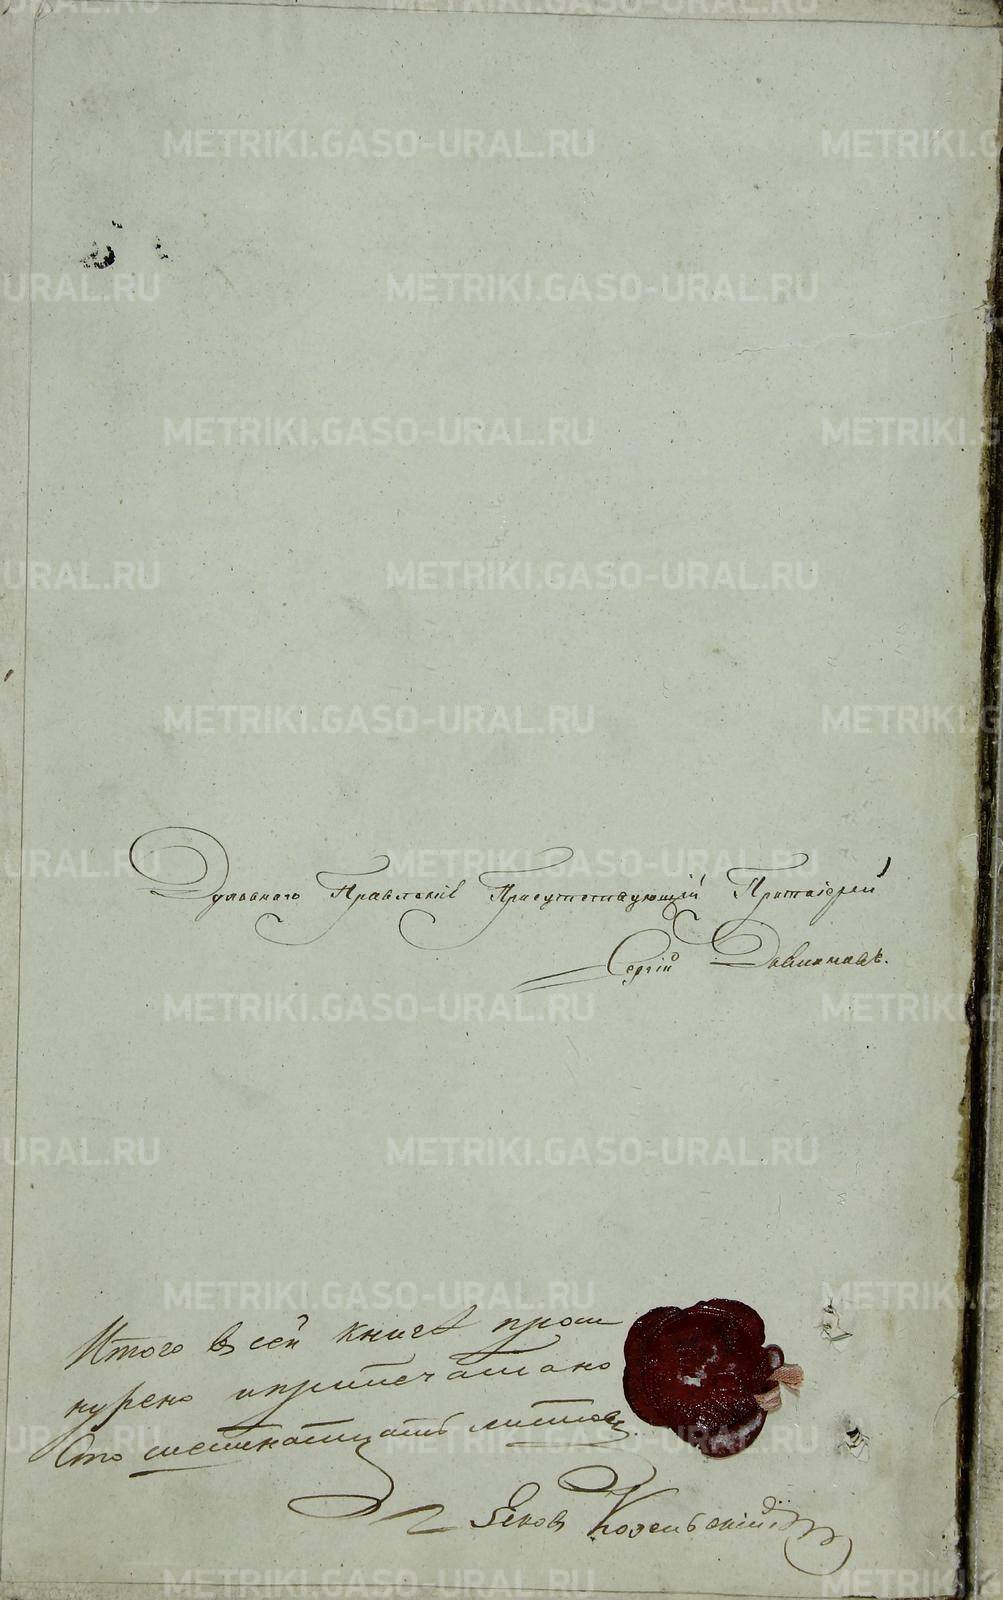 Духовнаго Правленія Присутствующій Протоіерей
Сергій
Итого в сей книгѣ прош
нурено и припечатано
Сто шестнатцать листовъ
Яков Козельскій
METRIKI.GASO-URAL.RU